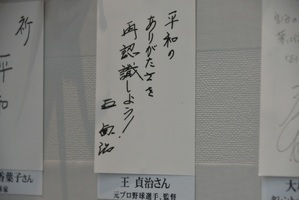 祈
平和
香葉子さん
平和の
ありがたさを
再認識しよう!
王貞治
王 貞治さん
元プロ野球選手、監督
大